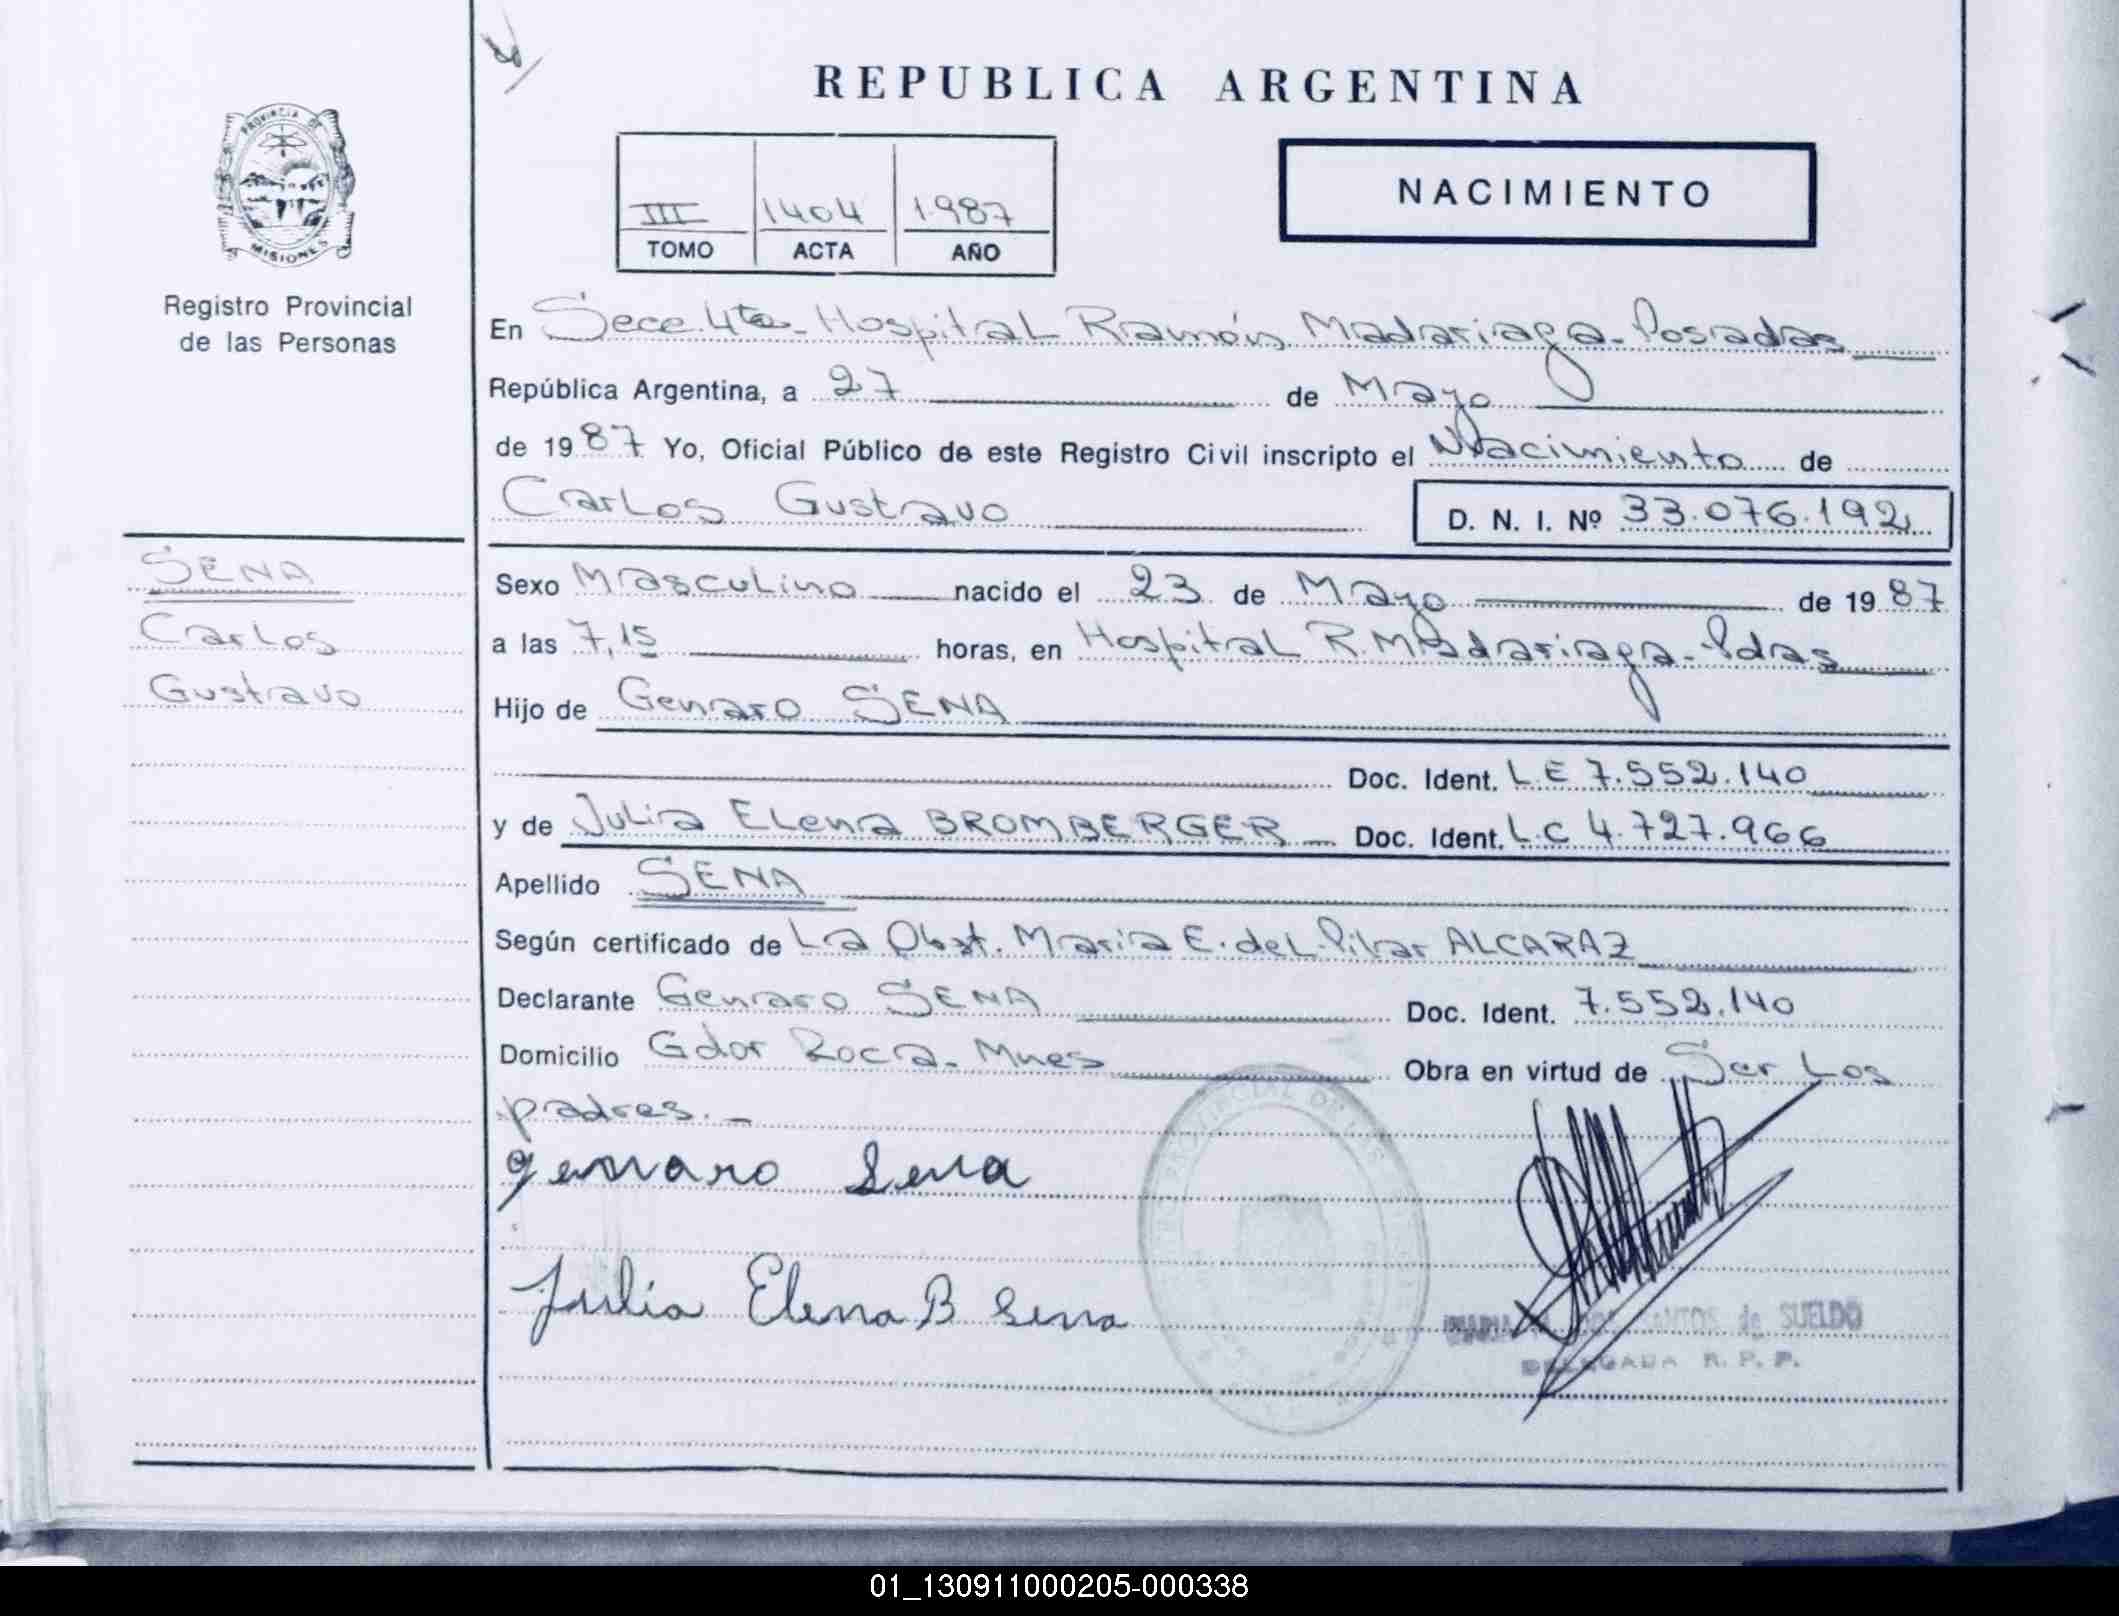 REPUBLICA ARGENTINA
PROVINCIA DE
MISIONES
Registro Provincial
de las Personas
III 1404 1987
TOMO ACTA AÑO
NACIMIENTO
En Secc. 4ta - Hospital Ramón Madariaga - Posadas
República Argentina, a 27 de Mayo
de 1987 Yo, Oficial Público de este Registro Civil inscripto el Nacimiento de
Carlos Gustavo D. N. I. Nº 33.076.192
SENA
Carlos
Gustavo
Sexo Masculino nacido el 23 de Mayo de 1987
a las 7,15 horas, en Hospital R. Madariaga - Pdas
Hijo de Genaro SENA
Doc. Ident. L.E 7.552.140
y de Julia Elena BROMBERGER Doc. Ident. L.C 4.727.966
Apellido SENA
Según certificado de La Obst. Maria E. del Pilar ALCARAZ
Declarante Genaro SENA Doc. Ident. 7.552.140
Domicilio Gdor Roca - Mnes Obra en virtud de Ser Los
padres. -
genaro Sena
Julia Elena B Sena
SANTOS de SUELDO
DELEGADA R. P. P.
01_130911000205-000338